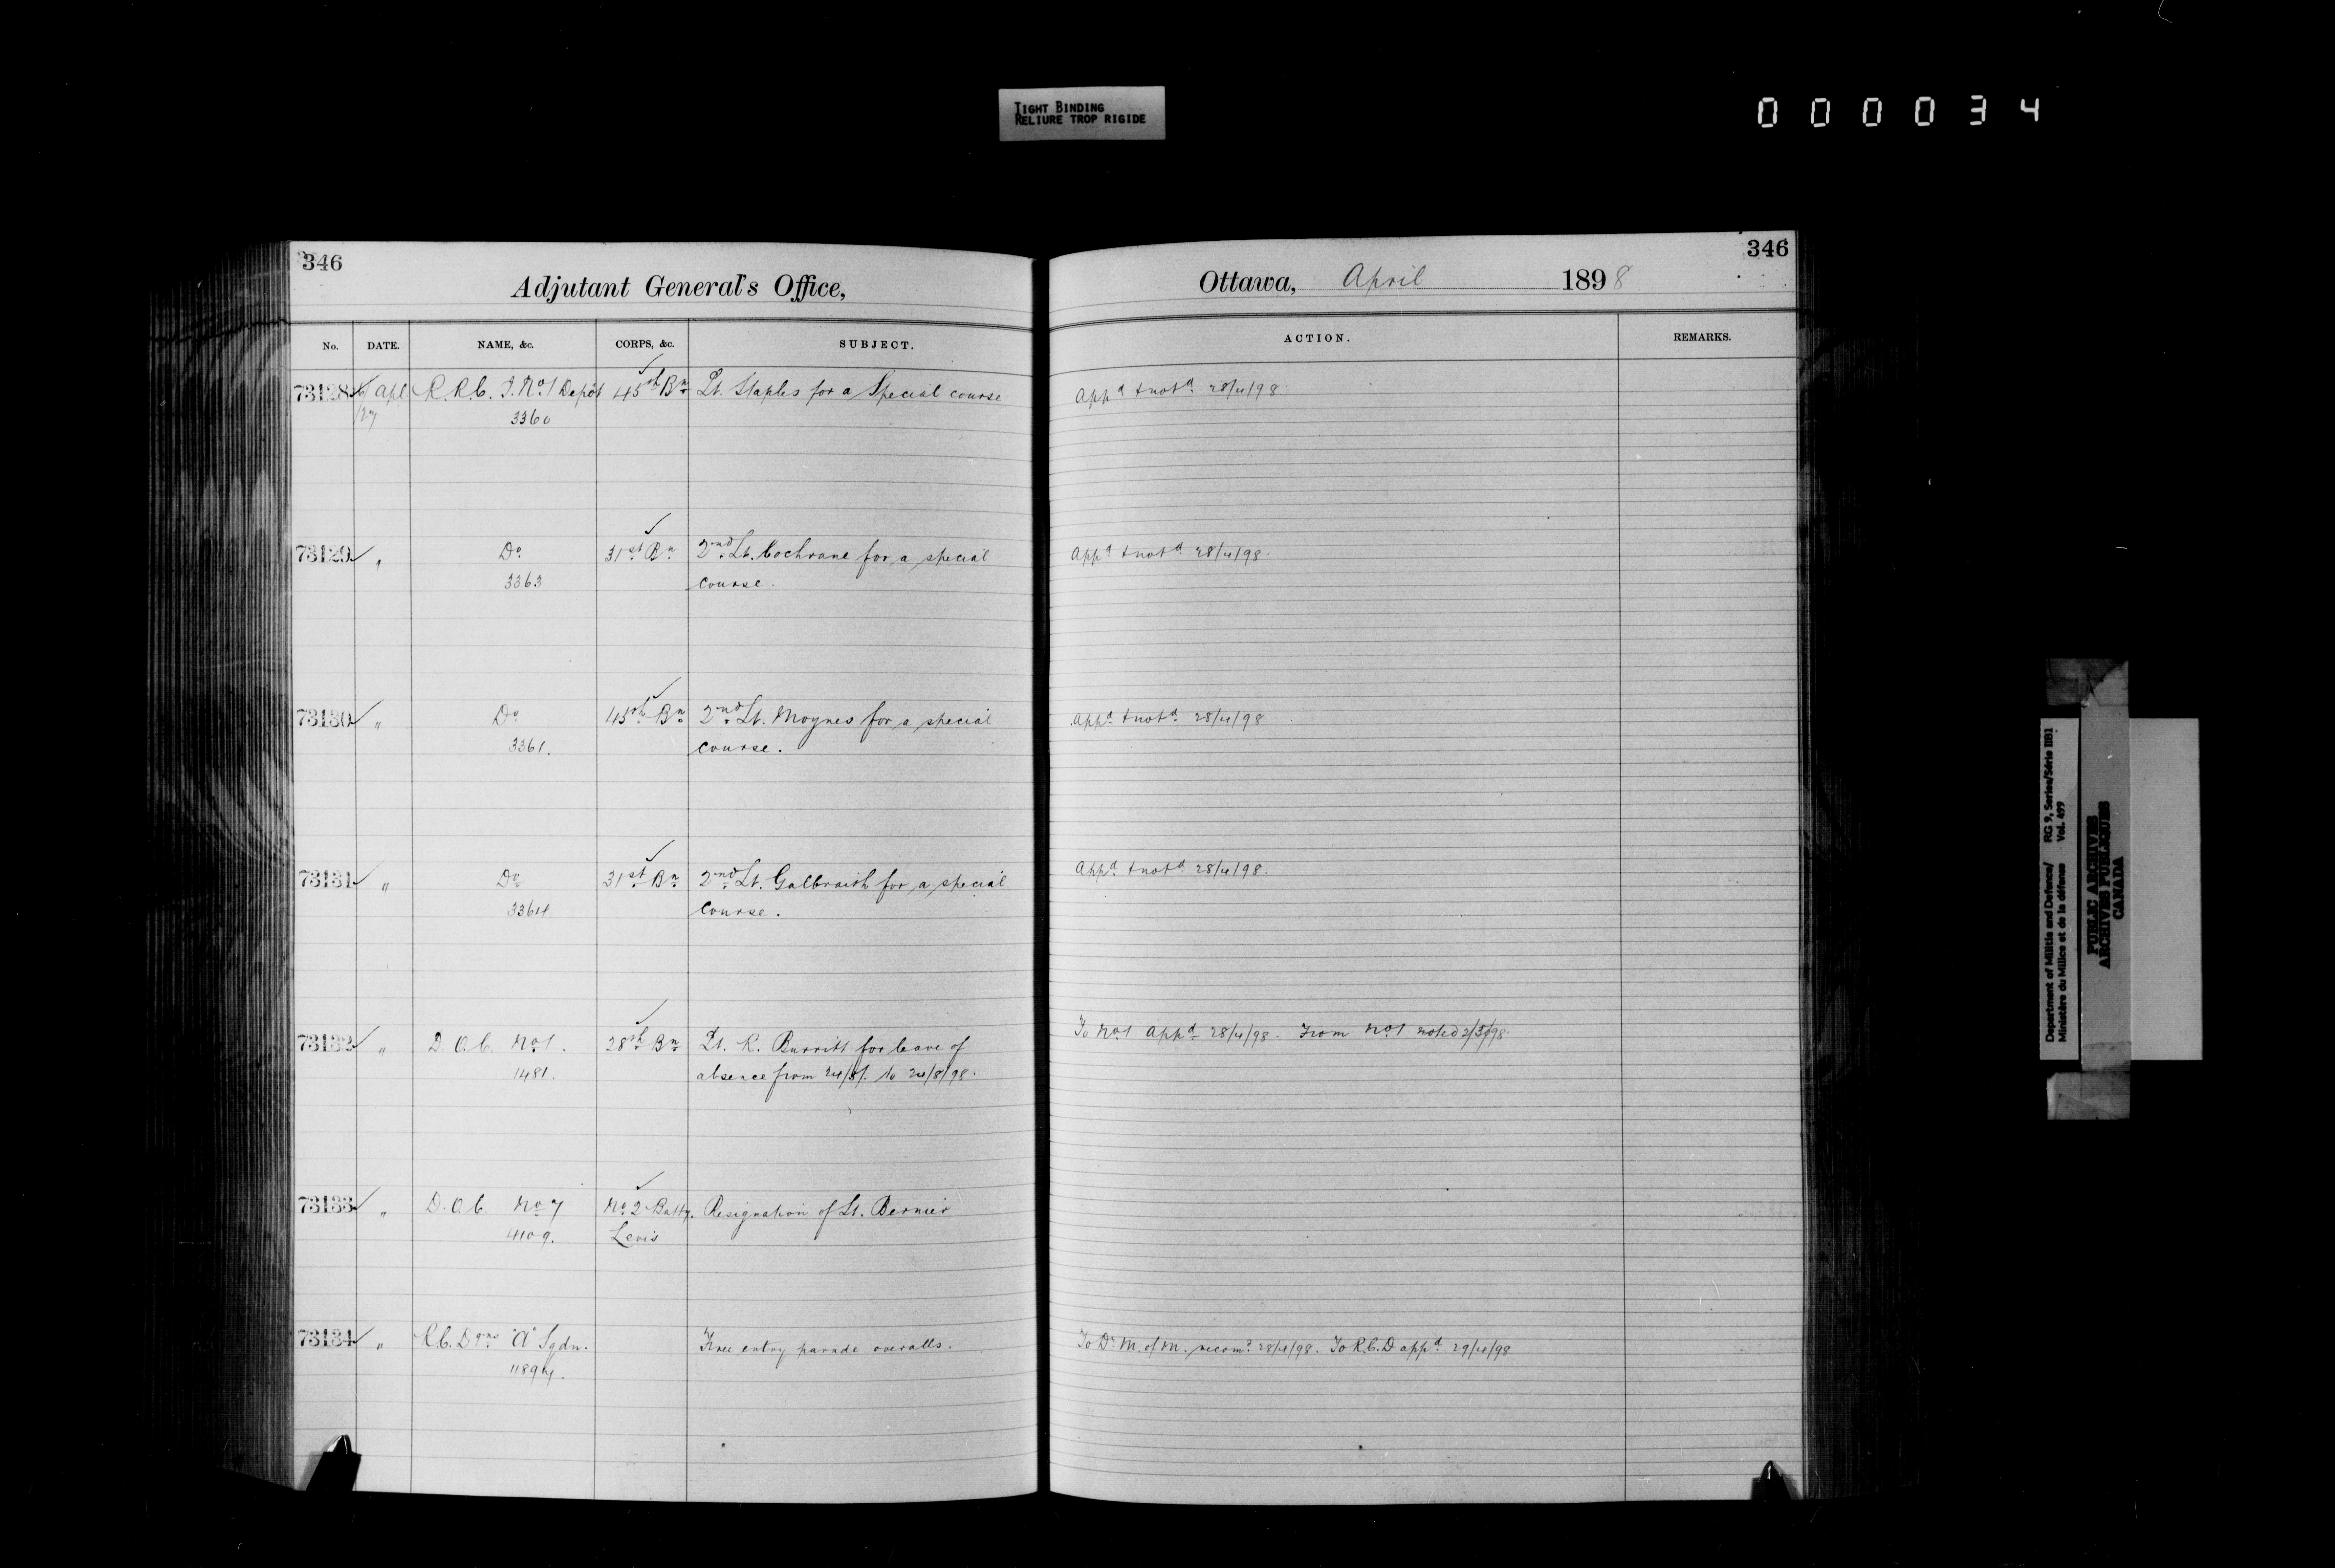 TIGHT BINDING
RELIURE TROP RIGIDE
000034
346
Adjutant General's Office,
No. DATE. NAME, &c. CORPS, &c. SUBJECT.
73128 Apl R.R.C.I. No 1 Depôt 45th Bn Lt. Staples for a Special course
/27 3360
73129 " Do 31st Bn 2nd Lt. Cochrane for a special
3363 course.
73130 " Do 45th Bn 2nd Lt. Moynes for a special
3361. course.
73131 " Do 31st Bn 2nd Lt. Galbraith for a special
3364 course.
73132 " D.O.C. No 1. 28th Bn Lt. R. Burritt for leave of
1481. absence from 24/5/. to 24/8/98.
73133 " D.O.C. No 7 No 2 Batty. Resignation of Lt. Bernier
4109. Levis
73134 " R.C. Dgns "A" Sqdn. Free entry parade overalls.
346
Ottawa, April 1898
ACTION. REMARKS.
Appd & notd 28/4/98
Appd & notd 28/4/98.
Appd & notd 28/4/98
Appd & notd 28/4/98.
To No 1 Appd 28/4/98. From No 1 noted 2/5/98.
To D. M. of M. recomd 28/4/98. To R.C.D appd 29/4/98
Department of Militia and Defence/ RG 9, Series/Série IIB1
Ministère du Milice et de la défense Vol. 499
PUBLIC ARCHIVES
ARCHIVES PUBLIQUES
CANADA